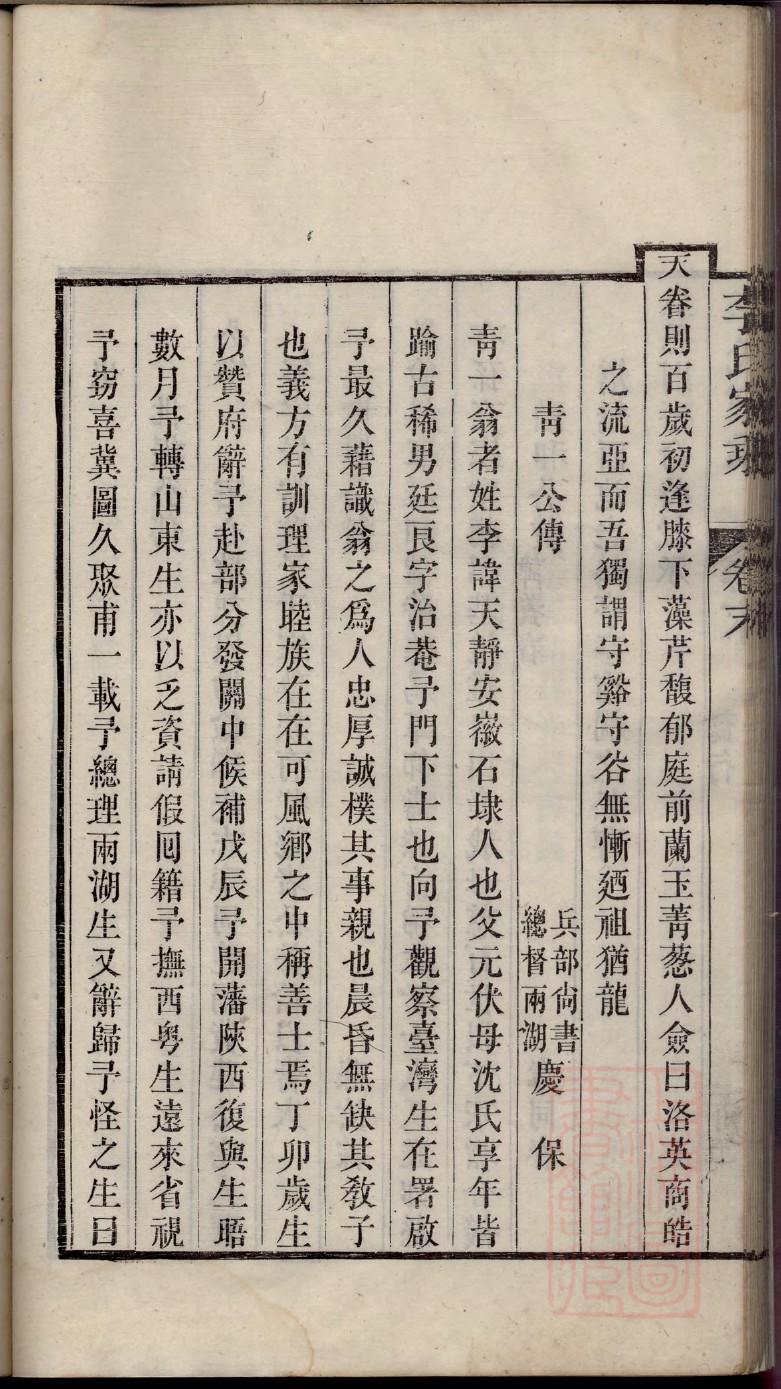 李氏家
卷末
天眷則百歲初逢膝下藻芹馥郁庭前蘭玉菁蔥人僉曰洛英商皓
之流亞而吾獨謂守谿守谷無慚廼祖猶龍
靑一公傳
兵部尙書
總督兩湖
慶保
靑一翁者姓李諱天靜安徽石埭人也父元伏母沈氏享年皆
踰古稀男廷良字治菴予門下士也向予觀察臺灣生在署啟
予最久藉識翁之爲人忠厚誠樸其事親也晨昏無缺其敎子
也義方有訓理家睦族在在可風鄉之中稱善士焉丁卯歲生
以贊府辭予赴部分發關中候補戊辰予開藩陝西復與生晤
數月予轉山東生亦以乏資請假囘籍予撫西粤生遠來省視
予竊喜冀圖久聚甫一載予總理兩湖生又辭歸予怪之生曰